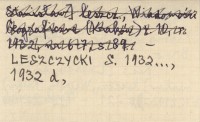 Stanisław] Leszcz., Wiadomości
Geograficzne (Kraków) r. 10, nr
LESZCZYCKI S. 1932...,
1932 d,